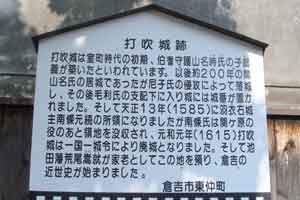 打吹城跡
打吹城は室町時代の初期、伯耆守護山名時氏の子師
義が築いたといわれています。以後約200年の間
山名氏の居城であったが尼子氏の侵攻によって落城
し、その後毛利氏の支配下に入り城には城番が置か
れました。そして天正13年(1585)に羽衣石城
主南條元続の所領になりましたが南條氏は関ヶ原の
役のあと領地を没収され、元和元年(1615)打吹
城は一国一城令により廃城となりました。そして池
田藩荒尾嵩就が家老としてこの地を預り、倉吉の
近世史が始まりました。
倉吉市東仲町